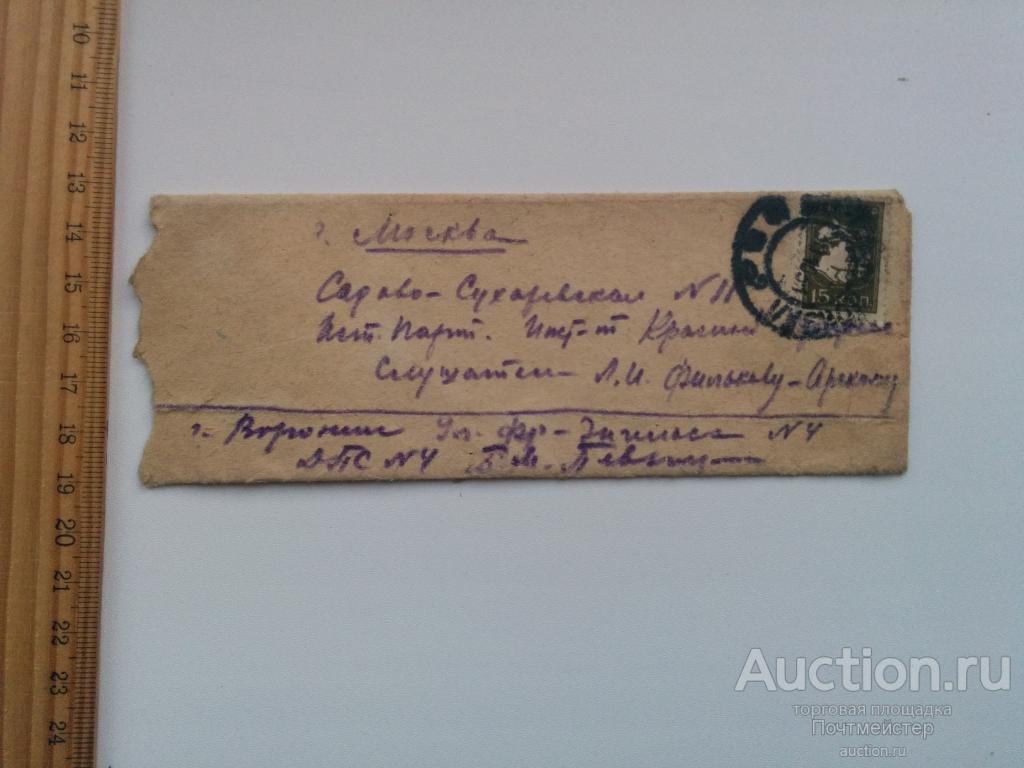 10
11
12
13
14
15
16
17
18
19
20
21
22
23
24
г. Москва
Садово-Сухаревская N 11
Ист. Парт. Инст-т Красной
Слушателю Л.И. Филькову-Арскому
15 коп.
г. Воронеж Ул. Фр-Энгельса N4
ДПС N4 Б.М. Певзнер
Auction.ru
торговая площадка
Почтмейстер
auction.ru